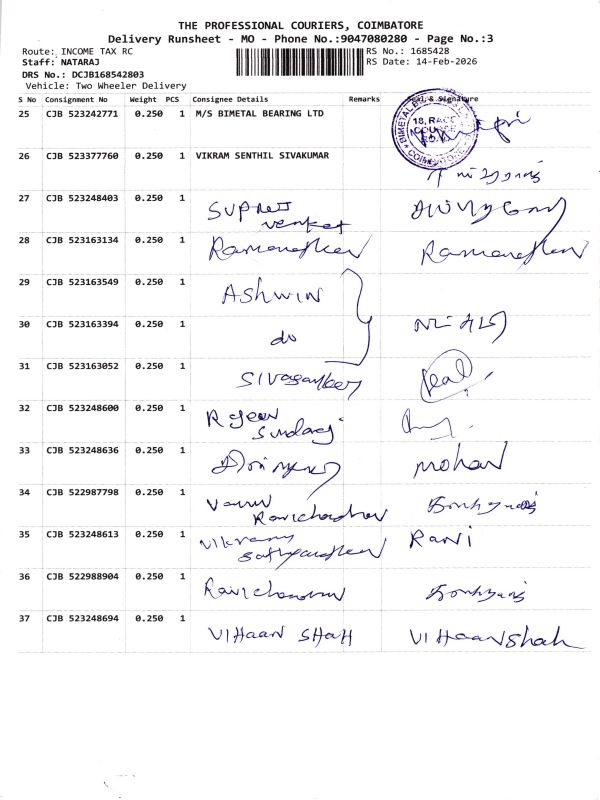 THE PROFESSIONAL COURIERS, COIMBATORE
Delivery Runsheet - MO - Phone No.:9047080280 - Page No.:3
Route: INCOME TAX RC RS No.: 1685428
Staff: NATARAJ RS Date: 14-Feb-2026
DRS No.: DCJB168542803
Vehicle: Two Wheeler Delivery
S No Consignment No Weight PCS Consignee Details Remarks Seal & Signature
25 CJB 523242771 0.250 1 M/S BIMETAL BEARING LTD
18, RACE
COURSE
COIMBATORE
26 CJB 523377760 0.250 1 VIKRAM SENTHIL SIVAKUMAR
27 CJB 523248403 0.250 1
venkat
28 CJB 523163134 0.250 1 Ramanathan Ramanathan
29 CJB 523163549 0.250 1 Ashwin
30 CJB 523163394 0.250 1 do
31 CJB 523163052 0.250 1
32 CJB 523248600 0.250 1
33 CJB 523248636 0.250 1 mohan
34 CJB 522987798 0.250 1
Ravichandran
35 CJB 523248613 0.250 1 Vikram Rani
36 CJB 522988904 0.250 1 Ravichandran
37 CJB 523248694 0.250 1 VIHaan SHAH VIHaan Shah